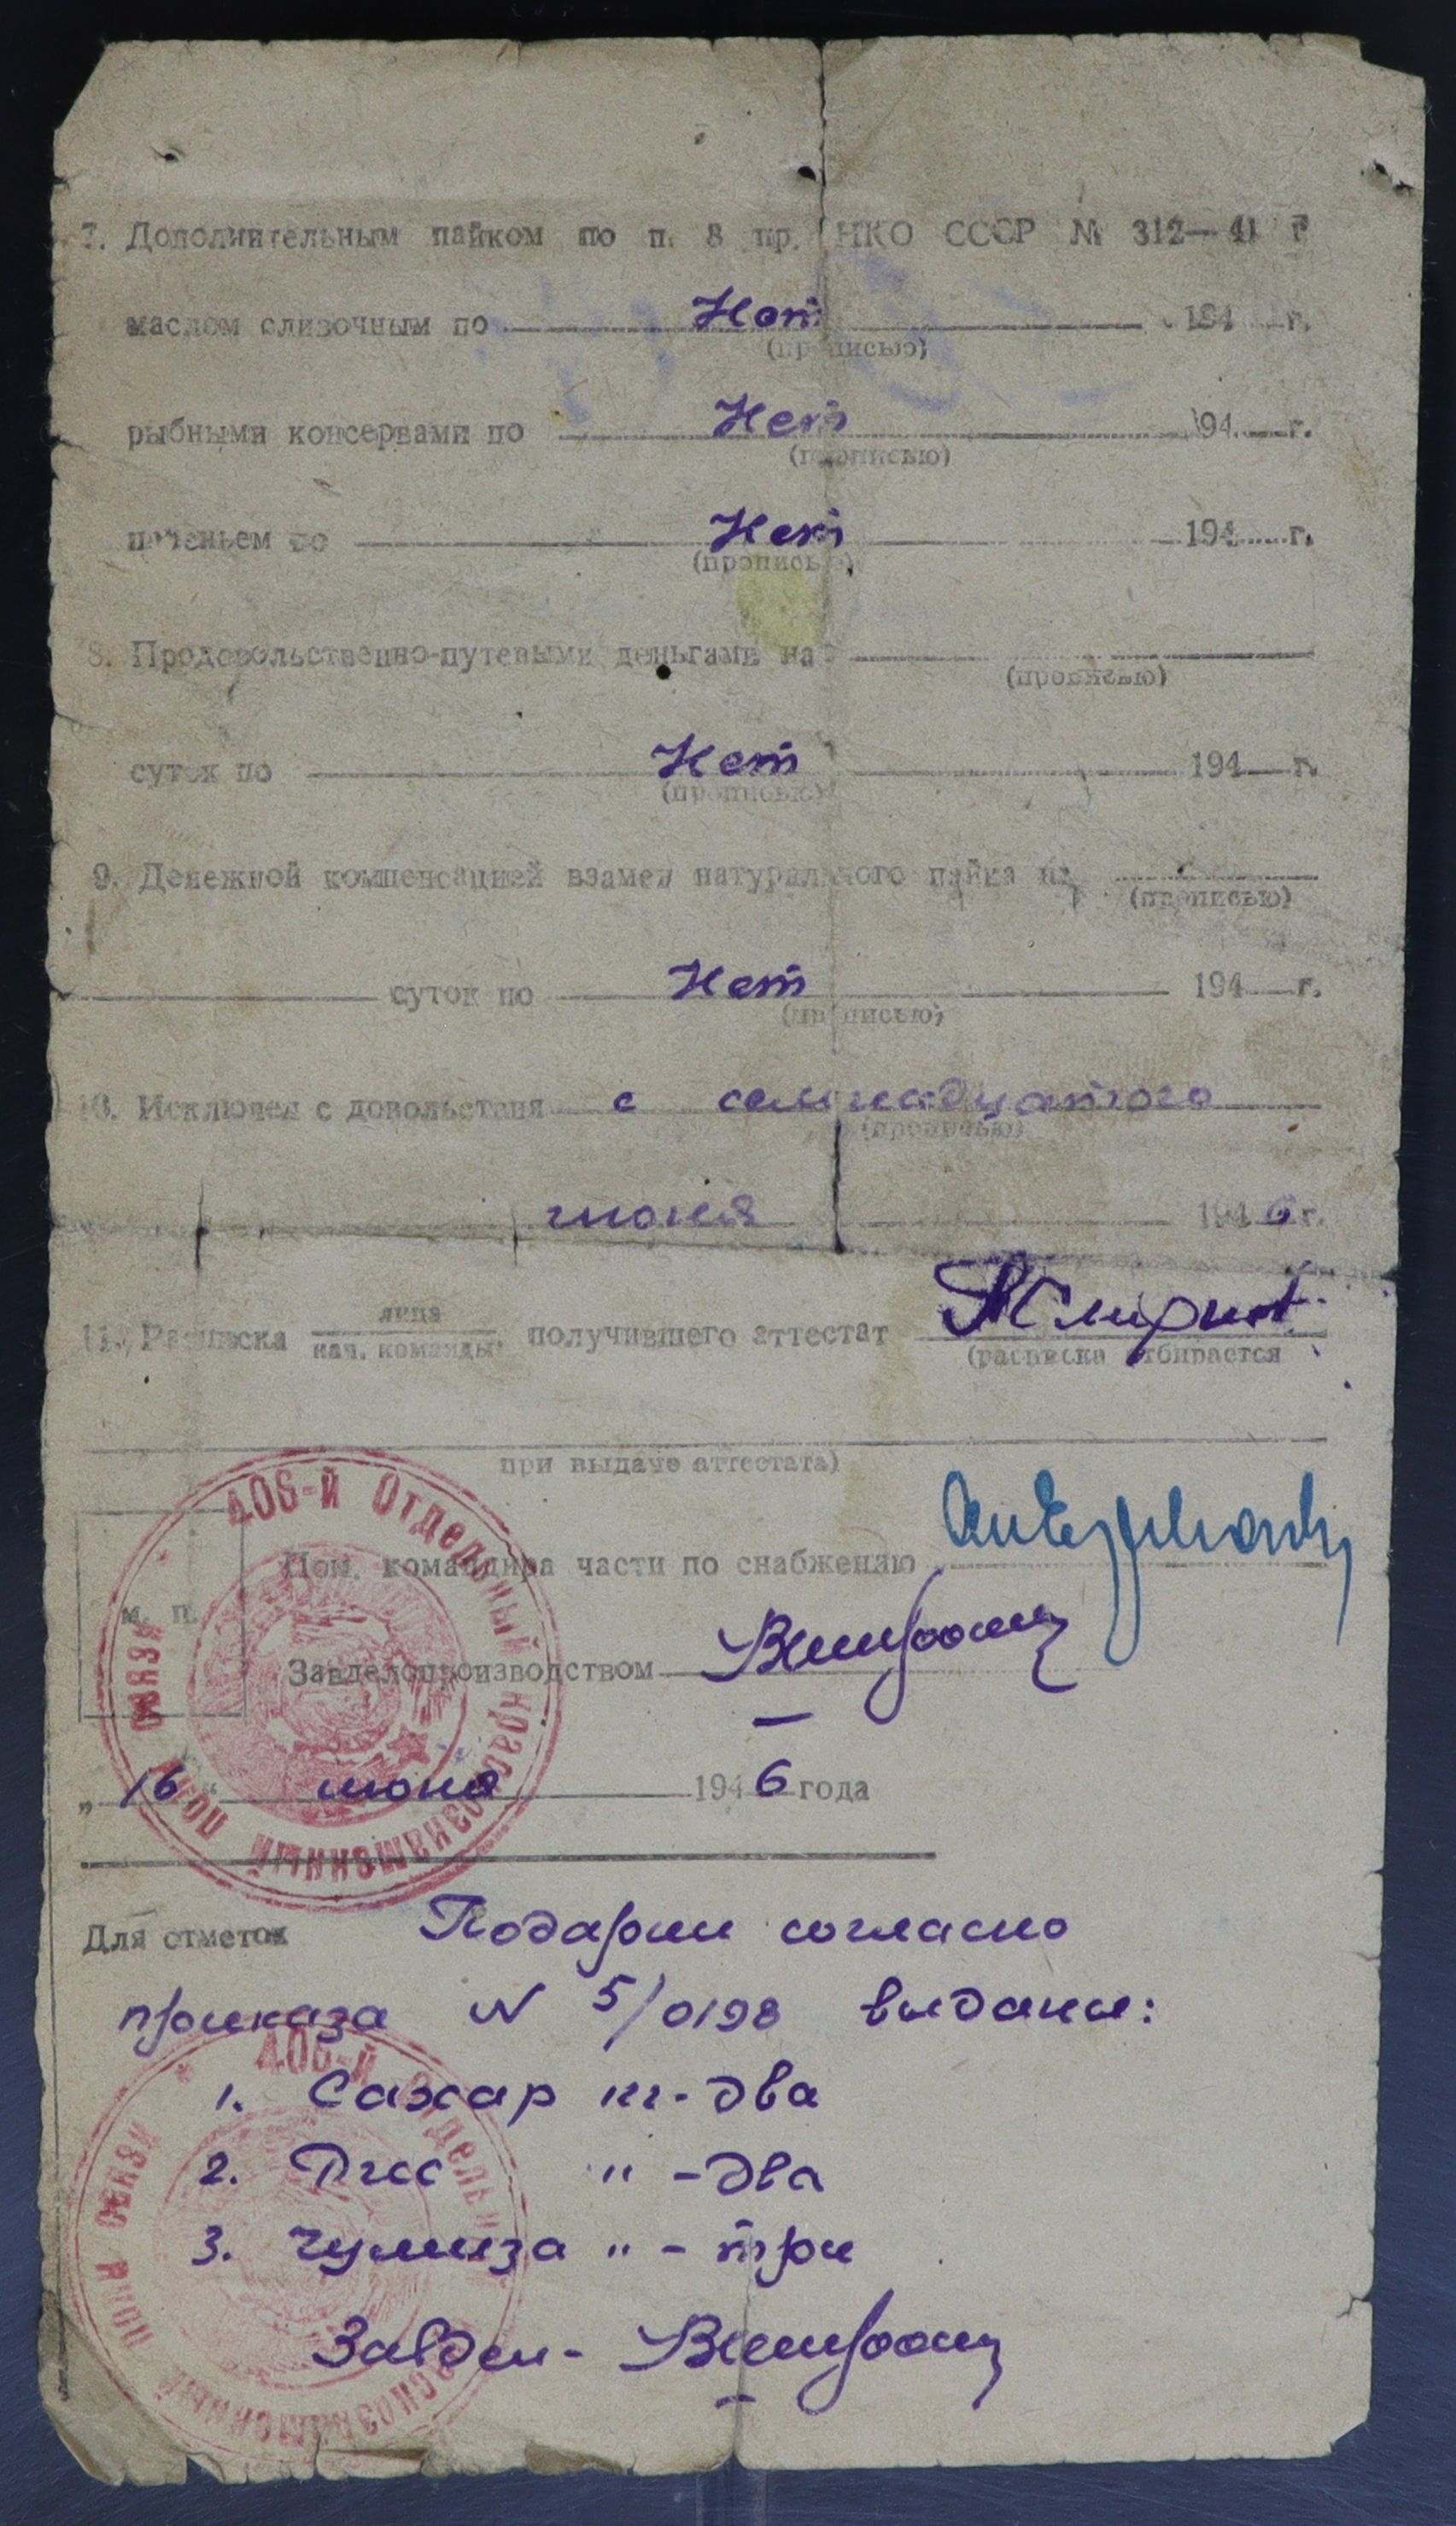 7. Дополнительным пайком по п. 8 пр. НКО СССР № 312—41 г
маслом сливочным по Нет 194 г.
(прописью)
рыбными консервами по Нет 194 г.
(прописью)
печеньем по Нет 194 г.
(прописью)
8. Продовольственно-путевыми деньгами на
(прописью)
суток по Нет 194 г.
(прописью)
9. Денежной компенсацией взамен натурального пайка на
(прописью)
суток по Нет 194 г.
(прописью)
10. Исключен с довольствия с семнадцатого
(прописью)
июня 1946 г.
11. Расписка лица
нач. команды, получившего аттестат
(расписка отбирается
при выдаче аттестата)
406-й Отдельный Краснознаменный полк связи
Пом. командира части по снабжению
м. п.
Завделопроизводством
„16“ июня 1946 года
Для отметок Подарки согласно
приказа N 5/0198 выданы:
1. Сахар кг - два
2. Рис " - два
3. Чумиза " - три
Завдел -
406-й Отдельный Краснознаменный полк связи